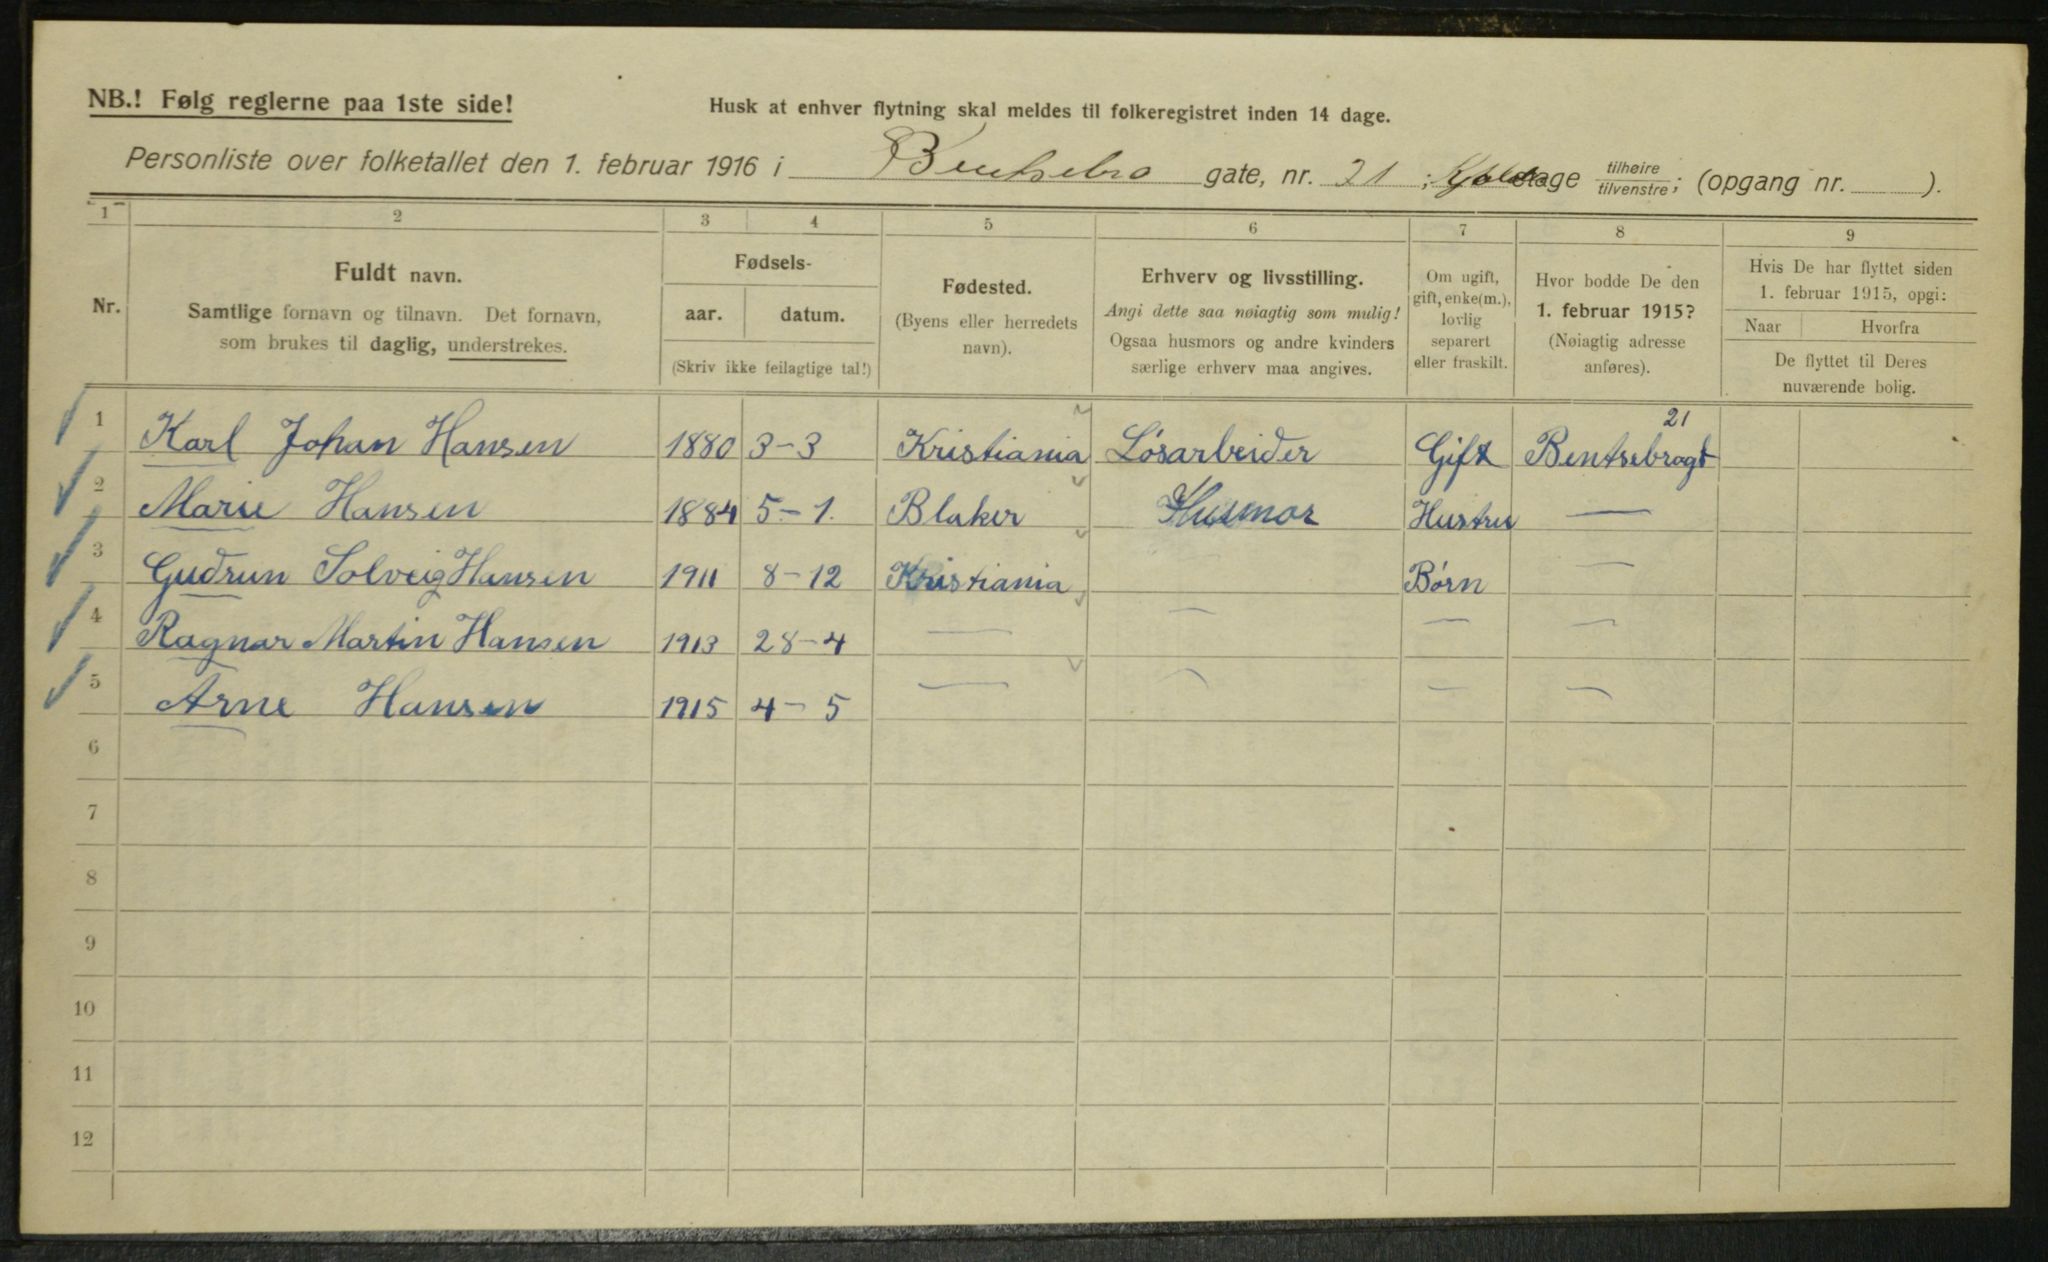 NB.! Følg reglerne paa 1ste side!
Husk at enhver flytning skal meldes til folkeregistret inden 14 dage.
Personliste over folketallet den 1. februar 1916 i Bentsebro gate, nr. 21; etage tilhøire tilvenstre; (opgang nr. ).
1 2 3 4 5 6 7 8 9
Nr.
Fuldt navn.
Samtlige fornavn og tilnavn. Det fornavn,
som brukes til daglig, understrekes.
Fødsels-
aar. datum.
(Skriv ikke feilagtige tal!)
Fødested.
(Byens eller herredets
navn).
Erhverv og livsstilling.
Angi dette saa nøiagtig som mulig!
Ogsaa husmors og andre kvinders
særlige erhverv maa angives.
Om ugift,
gift, enke(m.),
lovlig
separert
eller fraskilt.
Hvor bodde De den
1. februar 1915?
(Nøiagtig adresse
anføres).
Hvis De har flyttet siden
1. februar 1915, opgi:
Naar Hvorfra
De flyttet til Deres
nuværende bolig.
21
1 Karl Johan Hansen 1880 3-3 Kristiania Løsarbeider Gift Bentsebrogt
2 Marie Hansen 1884 5-1. Blaker Husmor Hustru —
3 Gudrun Solveig Hansen 1911 8-12 Kristiania — Børn —
4 Ragnar Martin Hansen 1913 28-4 — — — —
5 Arne Hansen 1915 4-5 — — — —
6
7
8
9
10
11
12